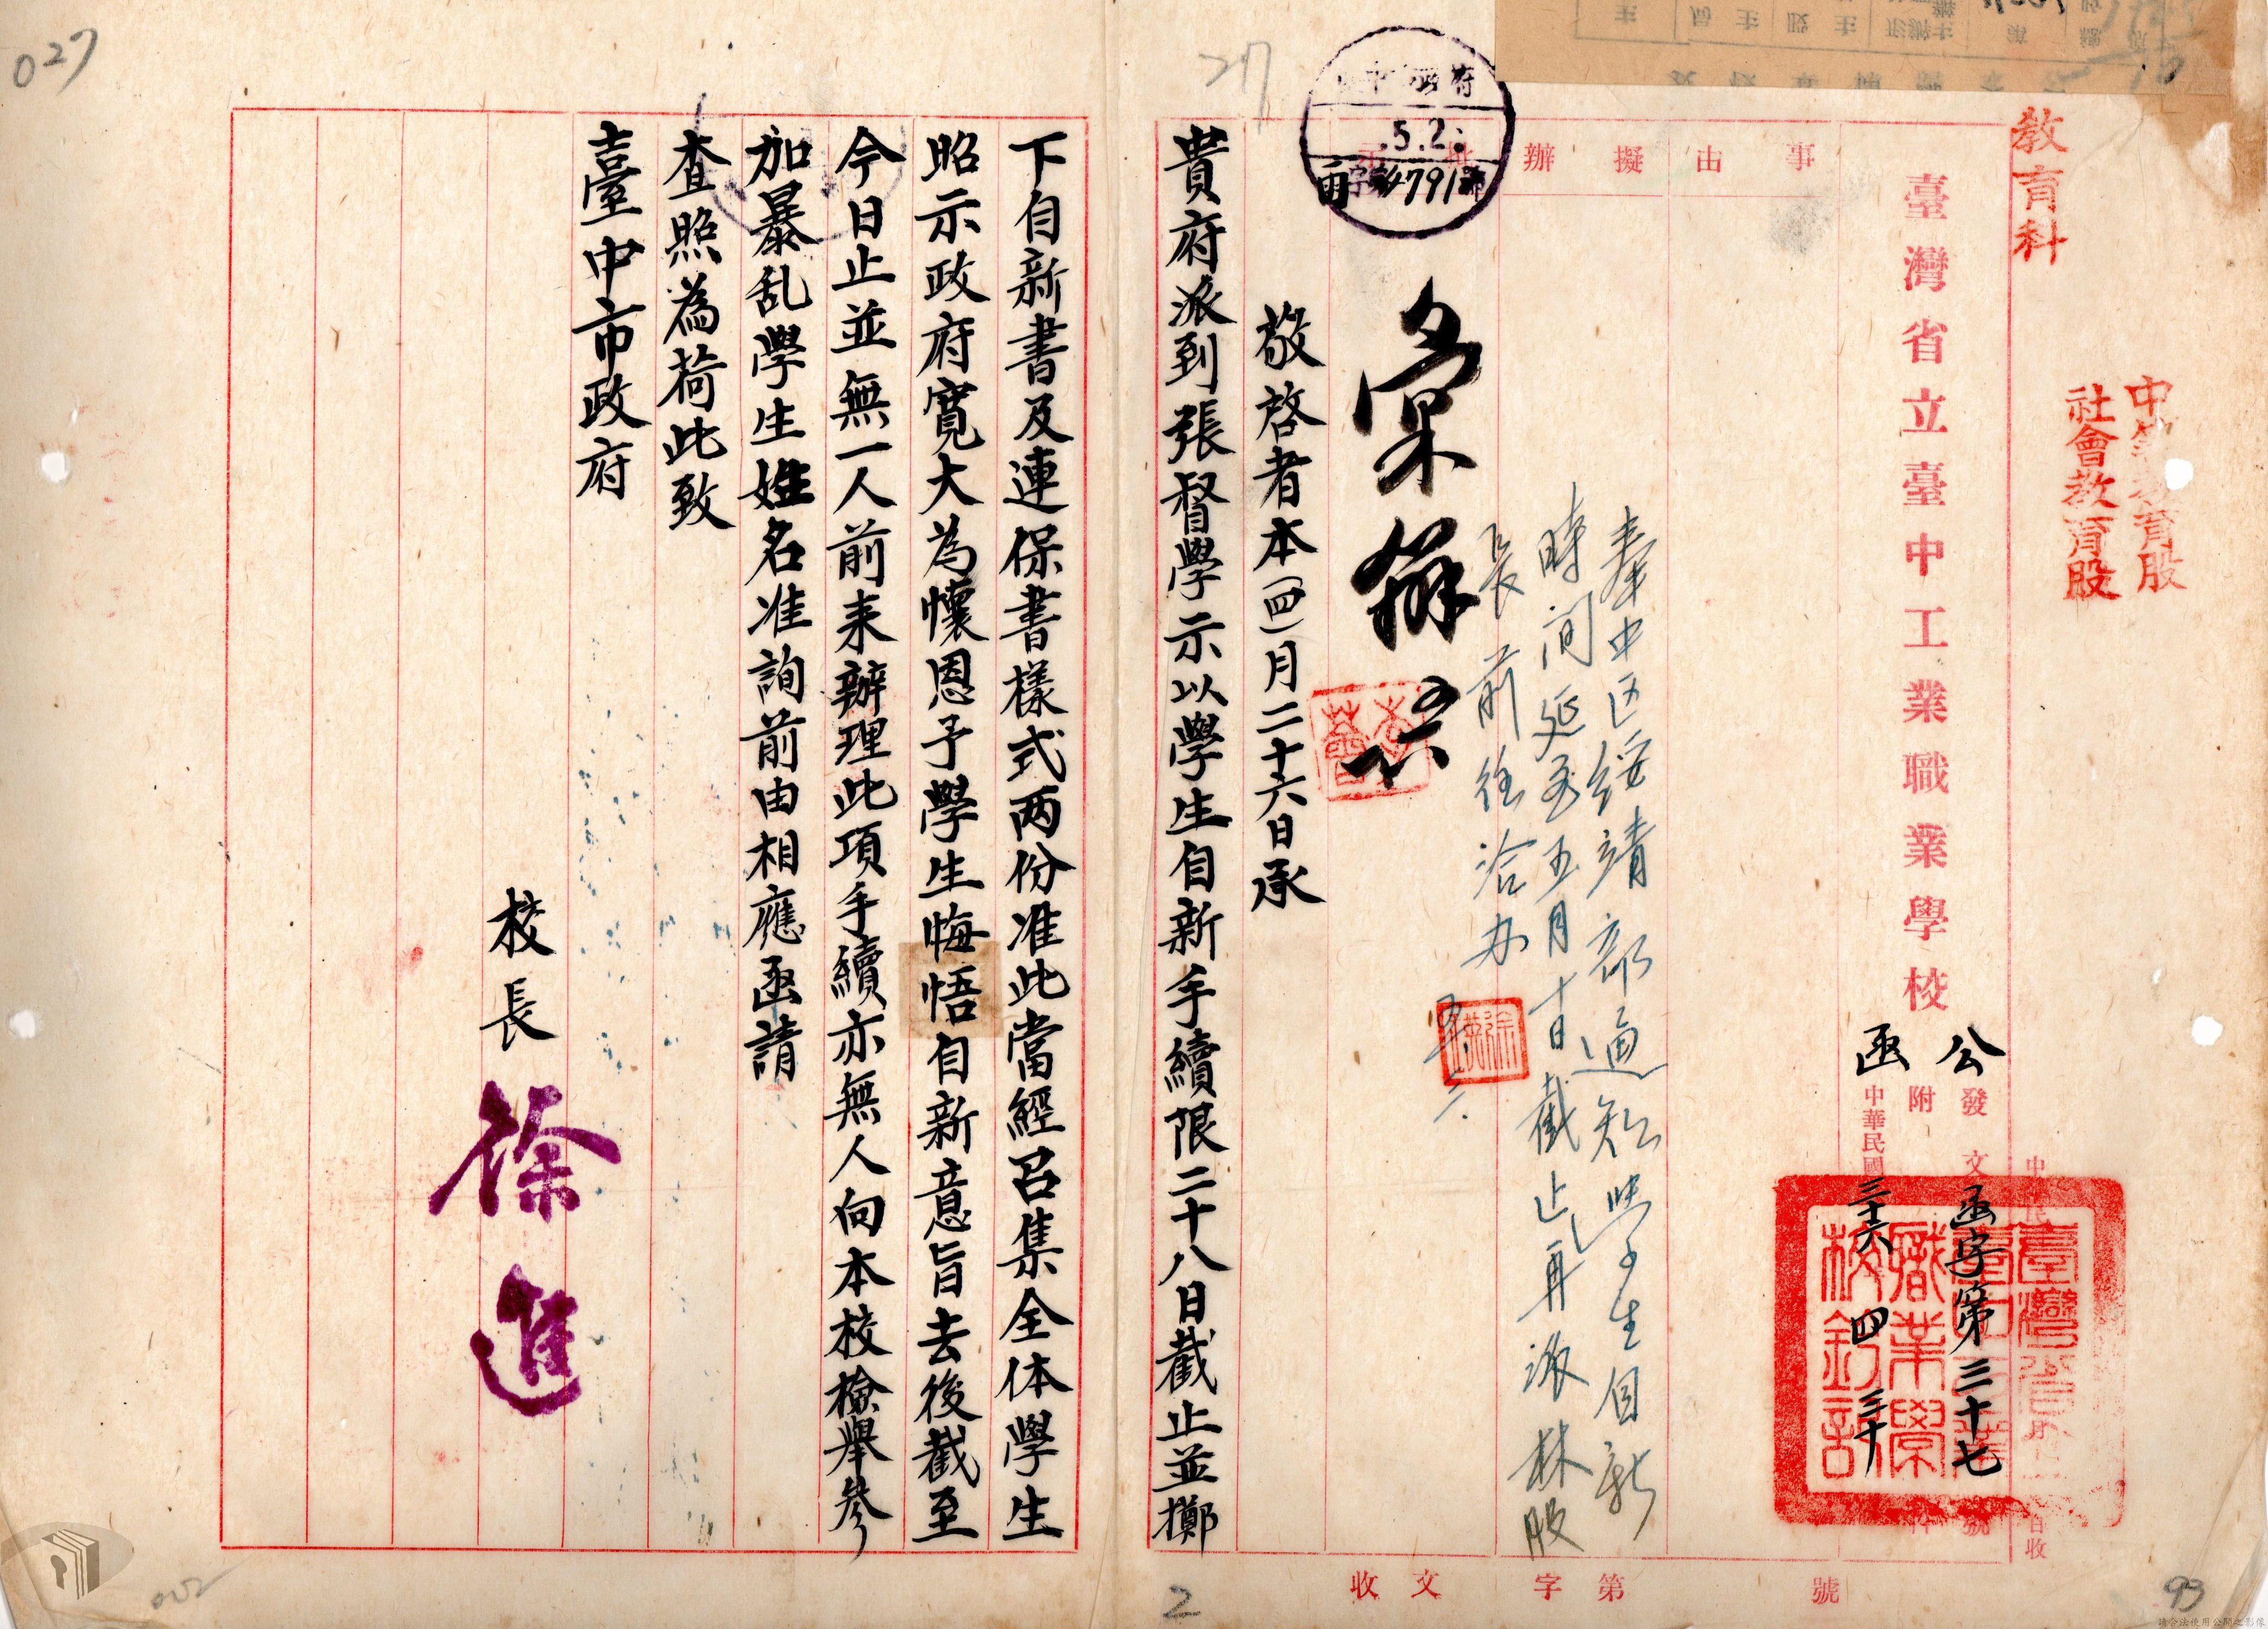 教育科
中等教育股
社會教育股
臺灣省立臺中工業職業學校
公函
發文函字第三十七號
附件
中華民國三十六 四 三十
事由
擬辦
批示
5.2.
4791
奉中区綏靖部通知學生自新
時间延至五月十日截止再派林股
長前往洽办
彙辦
敬啓者本(四)月二十六日承
貴府派到張督學示以學生自新手續限二十八日截止並擲
下自新書及連保書樣式两份准此當經召集全体學生
昭示政府寬大為懷恩予學生悔悟自新意旨去後截至
今日止並無一人前来辦理此項手續亦無人向本校檢舉參
加暴乱學生姓名准詢前由相應函請
查照為荷此致
臺中市政府
校長 徐進
收文 字第 號
027
27
2
93
002
請合法使用公開之影像